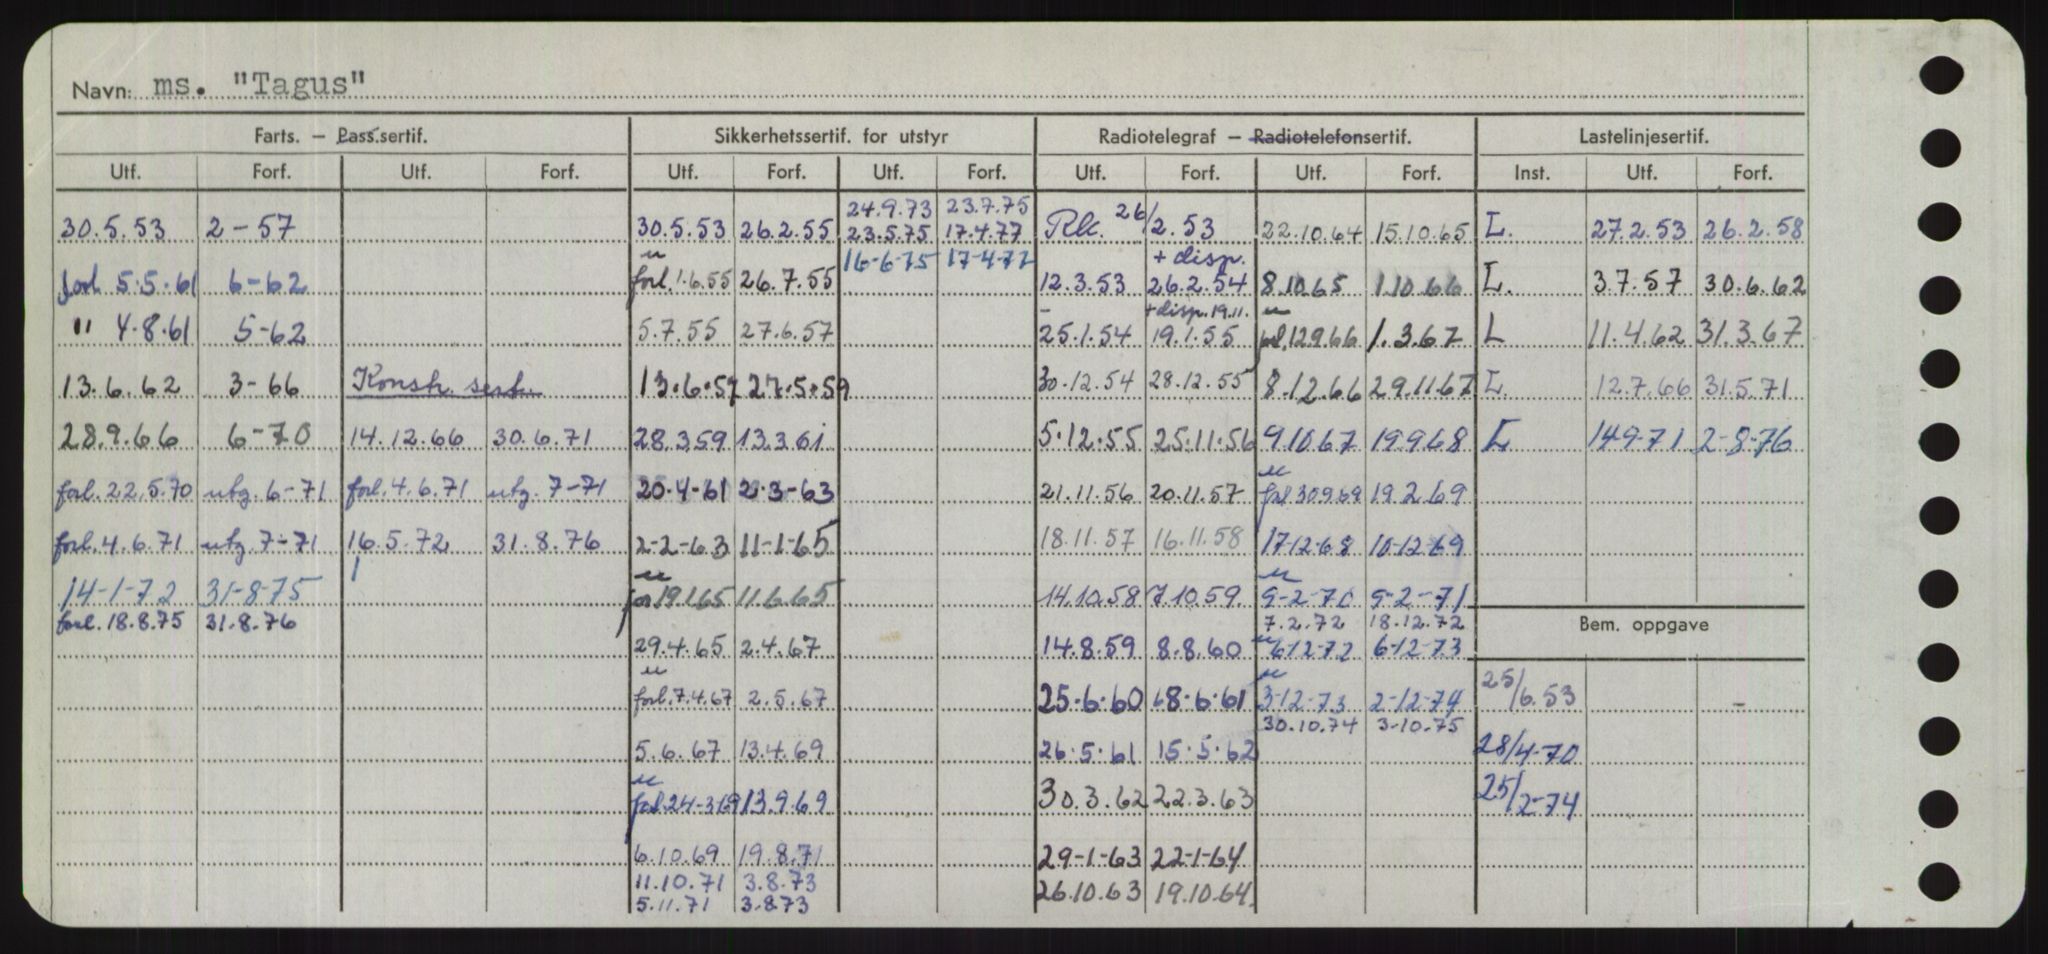 Navn: ms. "Tagus"
Farts. — Pass.sertif. Sikkerhetssertif. for utstyr Radiotelegraf — Radiotelefonsertif. Lastelinjesertif.
Utf. Forf. Utf. Forf. Utf. Forf. Utf. Forf. Utf. Forf. Utf. Forf. Inst. Utf. Forf.
24.9.73 23.7.75
30.5.53 2-57 30.5.53 26.2.55 23.5.75 17.4.77 Rk. 26/2.53 22.10.64 15.10.65 L. 27.2.53 26.2.58
16-6-75 17-4-77 + disp.
forl 5.5.61 6-62 forl. 1.6.55 26.7.55 12.3.53 26.2.54 8.10.65 1.10.66 L. 3.7.57 30.6.62
+ disp. 19.11.
" 4.8.61 5-62 5.7.55 27.6.57 25.1.54 19.1.55 forl. 12.9.66 1.3.67 L 11.4.62 31.3.67
13.6.62 3-66 Konstr. sert. 13.6.57 27.5.59 30.12.54 28.12.55 8.12.66 29.11.67 L. 12.7.66 31.5.71
28.9.66 6-70 14.12.66 30.6.71 28.3.59 13.3.61 5.12.55 25.11.56 9.10.67 19.9.68 L 14-9-71 2-8-76
forl. 22.5.70 utg. 6-71 forl. 4.6.71 utg. 7-71 20.4-61 2.3-63 21.11.56 20.11.57 forl 30.9.69 19.2.69
forl. 4.6.71 utg 7-71 16.5.72 31.8.76 2-2-63 11-1-65 18.11.57 16.11.58 17-12-68 10-12-69
14-1-72 31-8-75 for 19.1.65 11.6.65 14.10.58 7.10.59. 9-2-70 9-2-71
forl. 18.8.75 31.8.76 7.2.72 18.12.72 Bem. oppgave
29.4.65 2.4.67 14.8.59 8.8.60 6-12-72 6-12-73
forl. 7.4.67 2.5.67 25.6.60 18.6.61 3-12-73 2-12-74 25/6.53
30.10.74 3-10.75
5.6.67 13.4.69 26.5.61 15.5.62 28/4-70
forl. 24-3-69 13.9.69 30.3.62 22.3.63 25/2-74
6.10.69 19.8.71 29-1-63 22-1-64
11.10.71 3.8.73 26.10.63 19.10.64.
5.11.71 3.8.73